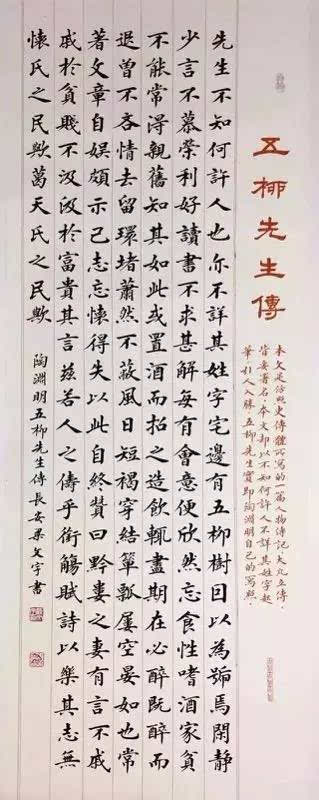 五柳先生傳
本文是仿照史傳體所寫的一篇人物傳記.大凡立傳.
皆要署名.本文却以不知何許人不詳其姓字起
筆.引人入勝.五柳先生實即陶淵明自己的寫照.
先生不知何許人也亦不詳其姓字宅邊有五柳樹因以為號焉閑靜
少言不慕榮利好讀書不求甚解每有會意便欣然忘食性嗜酒家貧
不能常得親舊知其如此或置酒而招之造飲輒盡期在必醉既醉而
退曾不吝情去留環堵蕭然不蔽風日短褐穿結簞瓢屢空晏如也常
著文章自娛頗示己志忘懷得失以此自終贊曰黔婁之妻有言不戚
戚於貧賤不汲汲於富貴其言茲若人之儔乎銜觴賦詩以樂其志無
懷氏之民歟葛天氏之民歟
陶淵明五柳先生傳長安梁文宇書